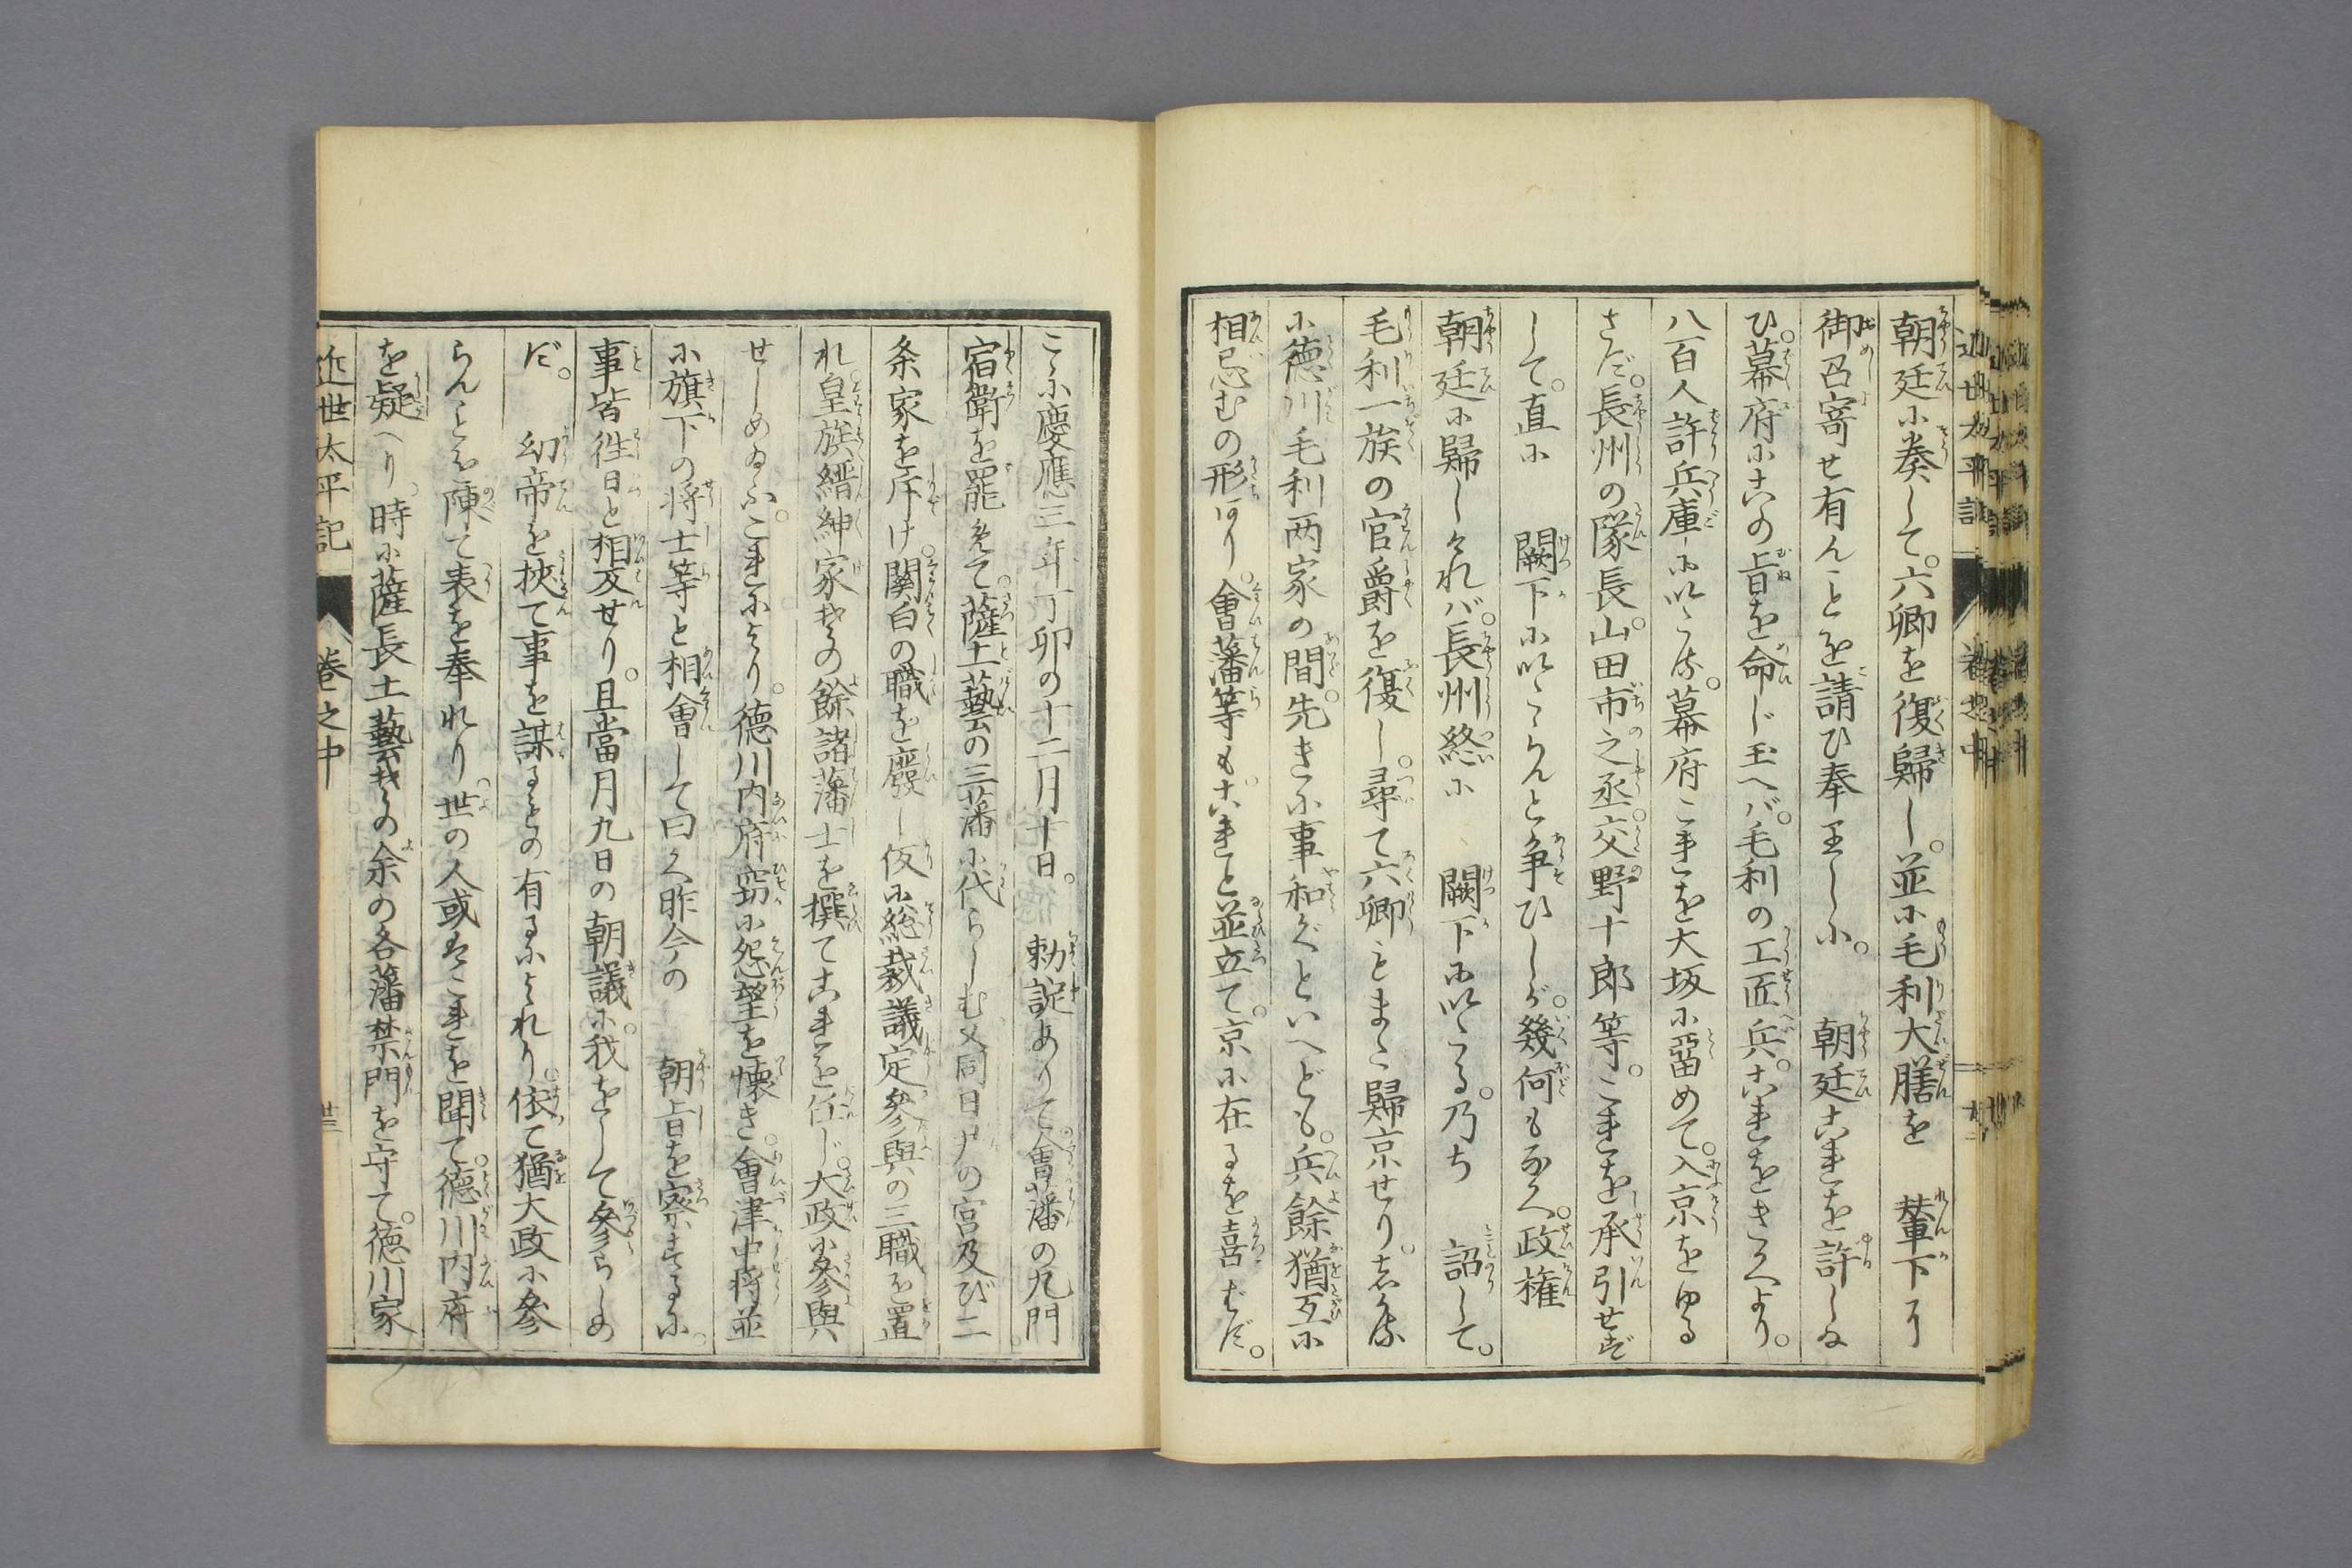 朝廷に奏して。六卿を復歸し。並に毛利大膳を　輦下に
御召寄せ有んことを請ひ奉里しに。　朝廷これを許しゐ
ひ。幕府にその旨を命じ玉へバ。毛利の工匠兵。これをきくより。
八百人許兵庫に以こ須。幕府これを大坂に留めて。入京をゆる
さず。長州の隊長。山田市之丞。交野十郎等。これを承引せず
して。直に　闕下に以こらんと争ひしが。幾何もなく。政権
朝廷に歸しければ。長州終に　闕下に以こる。乃ち　詔して。
毛利一族の官爵を復し。尋て六卿もまた歸京せり。志可るに
に徳川毛利両家の間。先きに事和ぐといへども。兵餘猶互に
相忌むの形あり。會藩等も。これと並立て。京に在るを喜ばず。
こゝに慶應三年丁卯の十二月十日。　勅諚ありて。會藩の九門
宿衛を罷免て。薩土藝の三藩に代らしむ又同日尹の宮及び二
条家を斥け。関白の職を廢し仮に総裁議定参與の三職を置
れ。皇族縉紳家其の餘諸藩士を撰てこれを任じ。大政に参與
せしめゐふ。これより。徳川内府窃に怨望を懐き。會津中将並
に旗下の将士等と相會して曰く昨今の　朝旨を察するに。
事皆徃日と相反せり。且當月九日の朝議に。我をして参らしめ
ず。　幼帝を挾て事を謀るとの有るによれり。依て猶大政に参
らんことを陳て表を奉れり。世の人或はこれを聞て。徳川内府
を疑へり。時に薩長土藝其の余の各藩禁門を守て。徳川家
近世太平記　巻之中　廿三